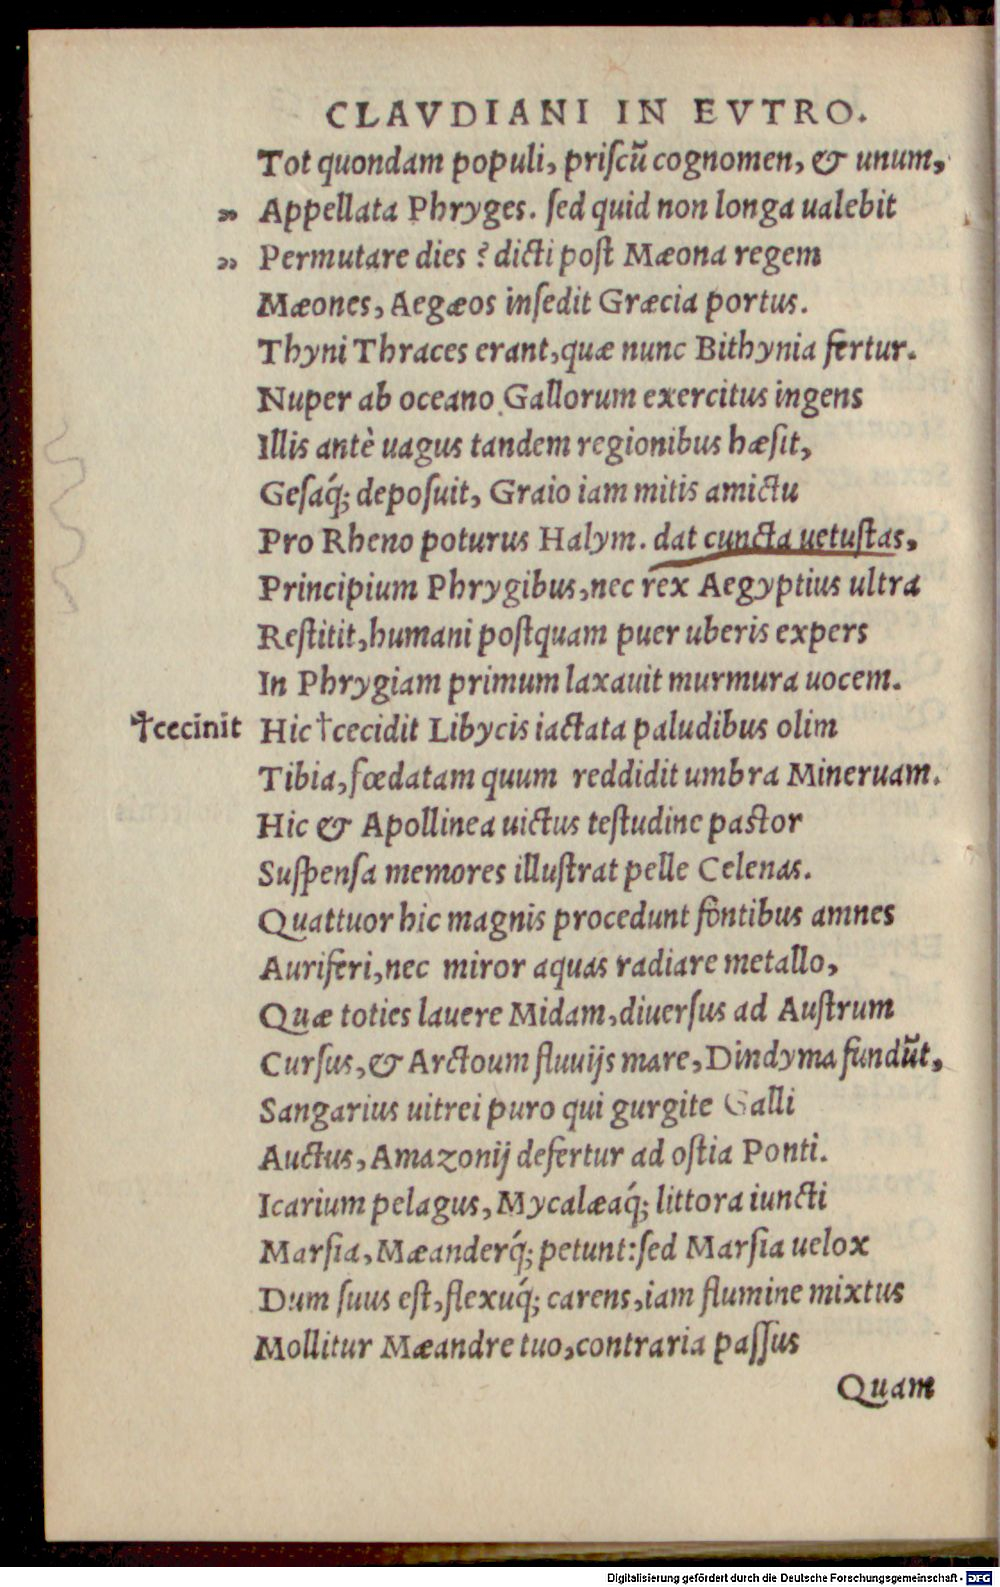 CLAVDIANI IN EVTRO.
Tot quondam populi, priſcũ cognomen, & unum,
„ Appellata Phryges. ſed quid non longa ualebit
„ Permutare dies? dicti poſt Mæona regem
Mæones, Aegæos inſedit Græcia portus.
Thyni Thraces erant, quæ nunc Bithynia fertur.
Nuper ab oceano Gallorum exercitus ingens
Illis antè uagus tandem regionibus hæſit,
Geſaq́; depoſuit, Graio iam mitis amictu
Pro Rheno poturus Halym. dat cuncta uetuſtas,
Principium Phrygibus, nec rex Aegyptius ultra
Reſtitit, humani poſtquam puer uberis expers
In Phrygiam primum laxauit murmura uocem.
†cecinit Hic †cecidit Libycis iactata paludibus olim
Tibia, fœdatam quum reddidit umbra Mineruam.
Hic & Apollinea uictus teſtudine paſtor
Suſpenſa memores illuſtrat pelle Celenas.
Quattuor hic magnis procedunt fontibus amnes
Auriferi, nec miror aquas radiare metallo,
Quæ toties lauere Midam, diuerſus ad Auſtrum
Curſus, & Arctoum fluuijs mare, Dindyma fundũt,
Sangarius uitrei puro qui gurgite Galli
Auctus, Amazonij defertur ad oſtia Ponti.
Icarium pelagus, Mycalæaq́; littora iuncti
Marſia, Mæanderq́; petunt: ſed Marſia uelox
Dum ſuus eſt, flexuq́; carens, iam flumine mixtus
Mollitur Mæandre tuo, contraria paſſus
Quam
Digitalisierung gefördert durch die Deutsche Forschungsgemeinschaft - DFG